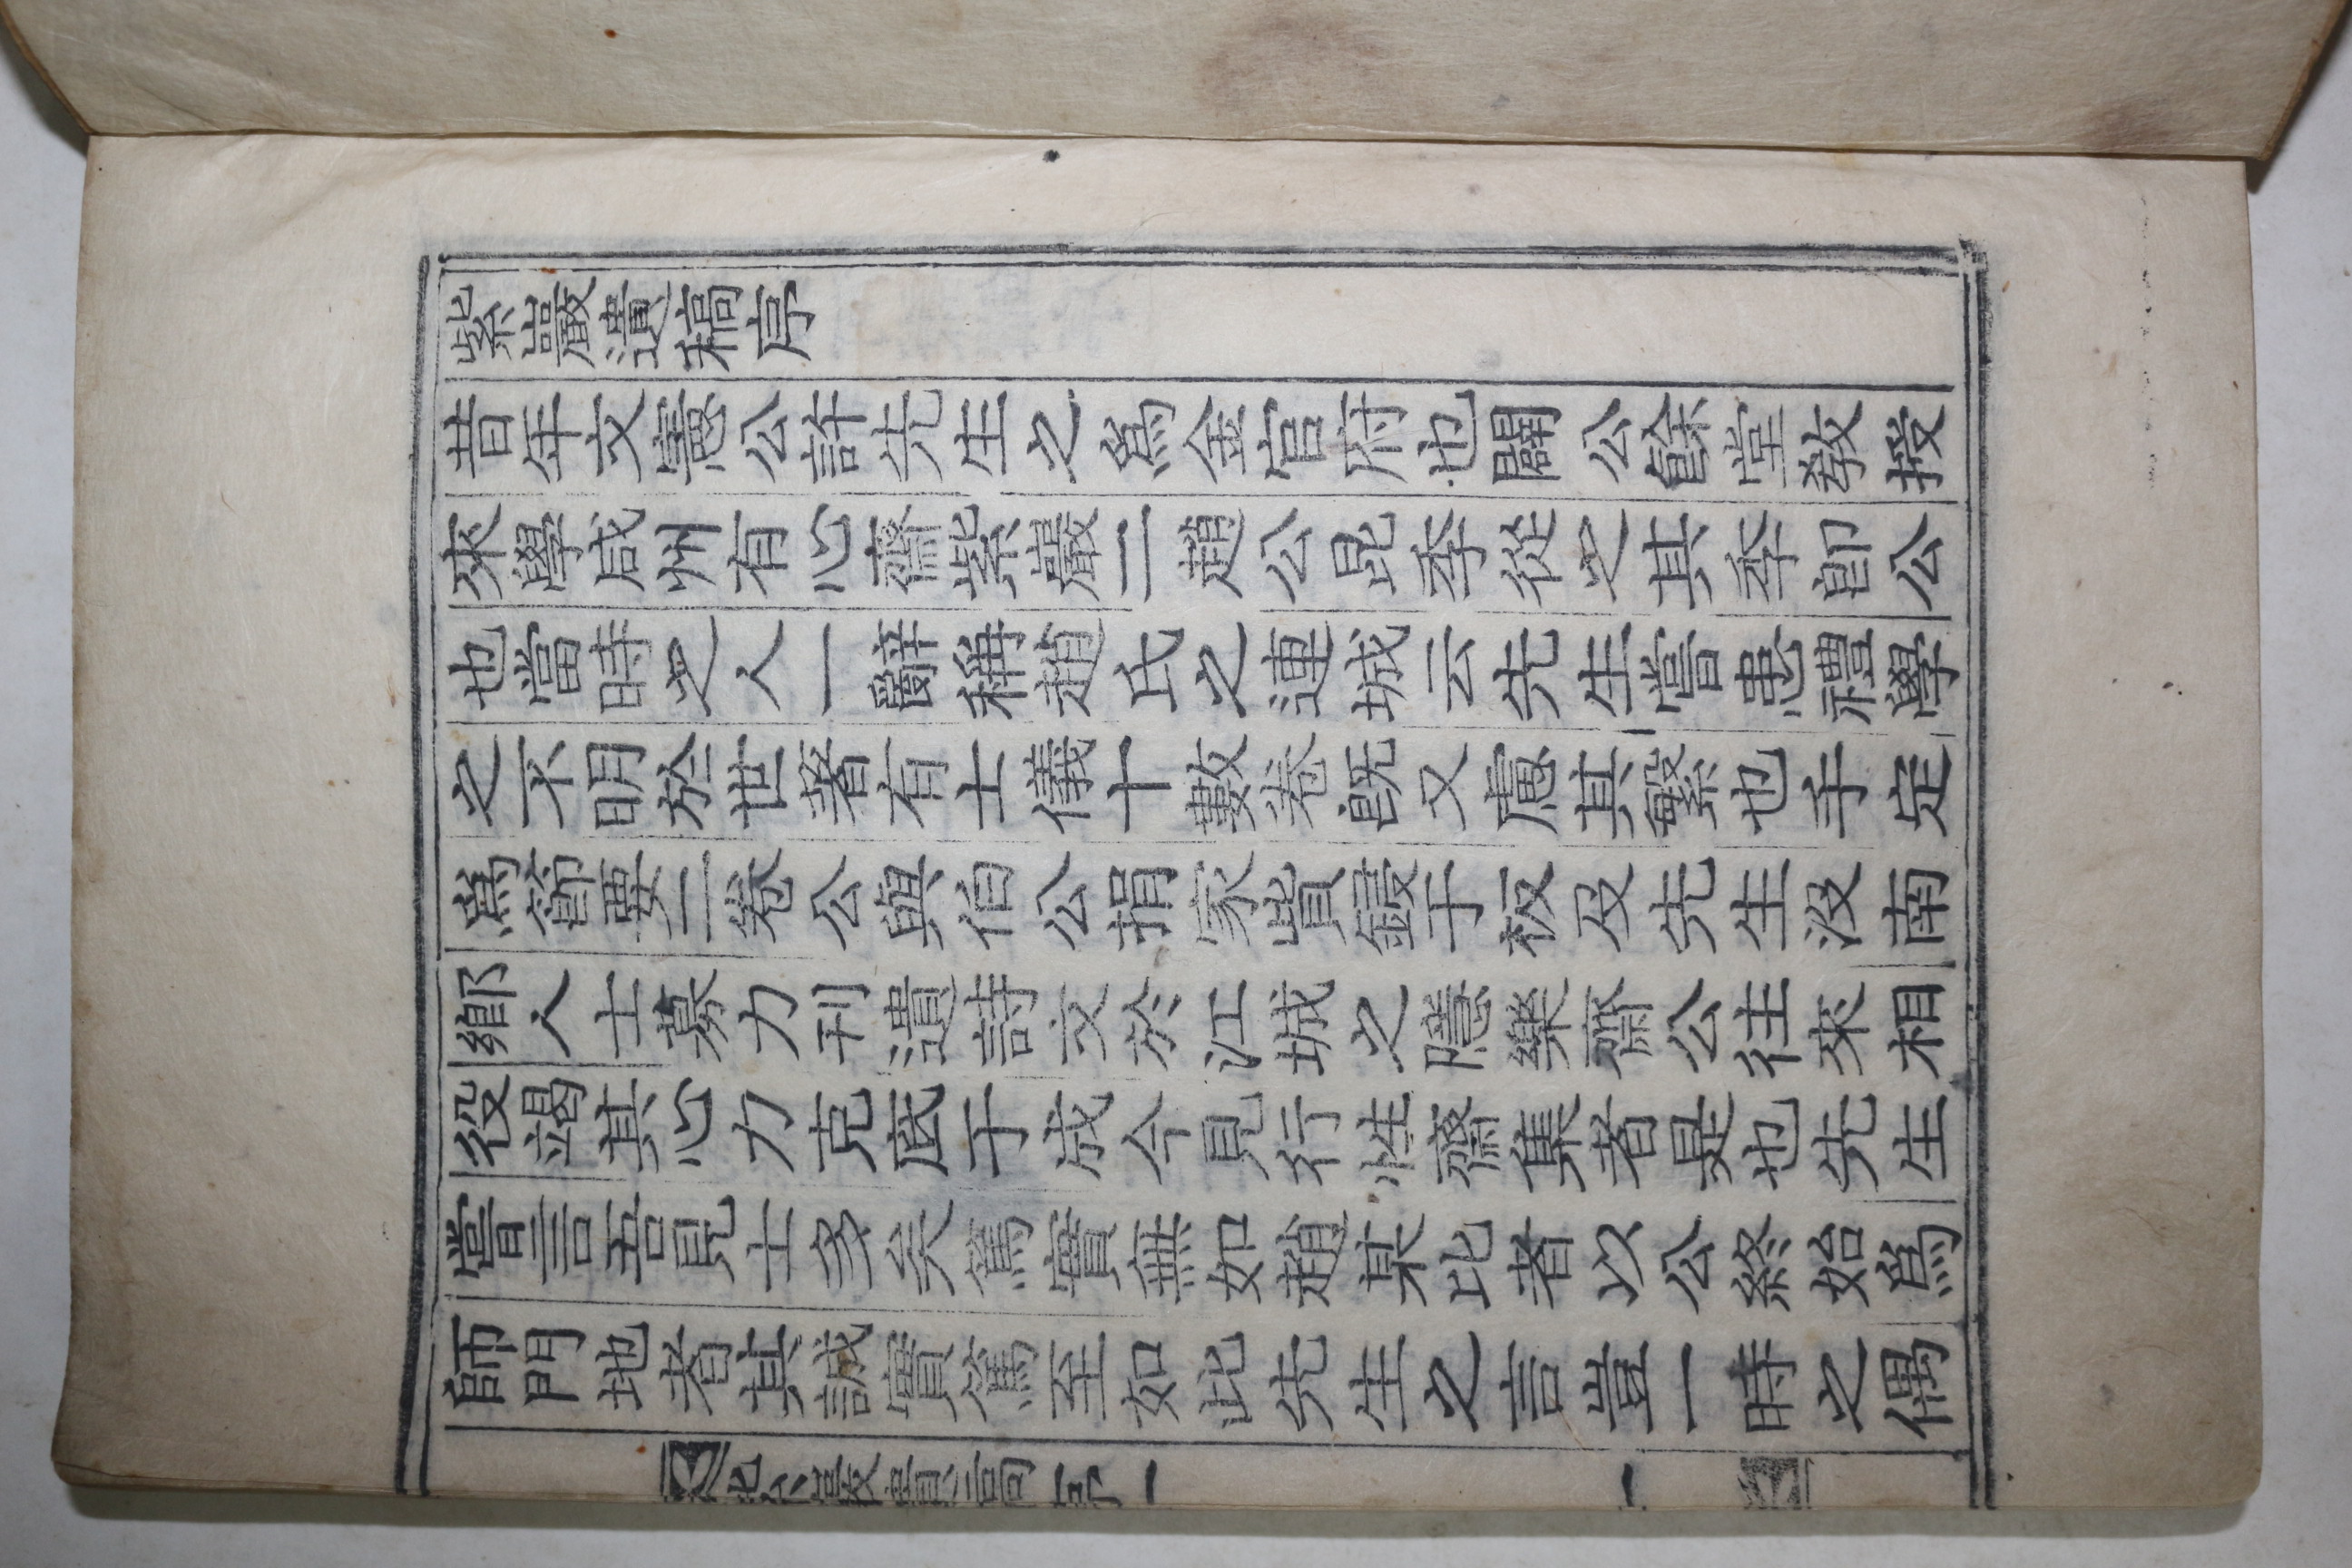 紫巖遺稿序
昔年文憲公許先生之爲金官府也闢公餘堂敎授
來學咸州有心齋紫巖二趙公昆季從之其季卽公
也當時之人一辭稱趙氏之連城云先生嘗患禮學
之不明於世著有士儀十數卷旣又慮其繁也手定
爲節要二卷公與伯公捐家貲鋟于板及先生沒南
鄕人士募力刊遺詩文於江城之隱樂齋公往來相
役竭其心力克底于成今見行性齋集者是也先生
嘗言吾見士多矣篤實無如趙某比者以公終始爲
師門地者其誠實篤至如此先生之言豈一時之偶
紫巖遺稿 序 一
一